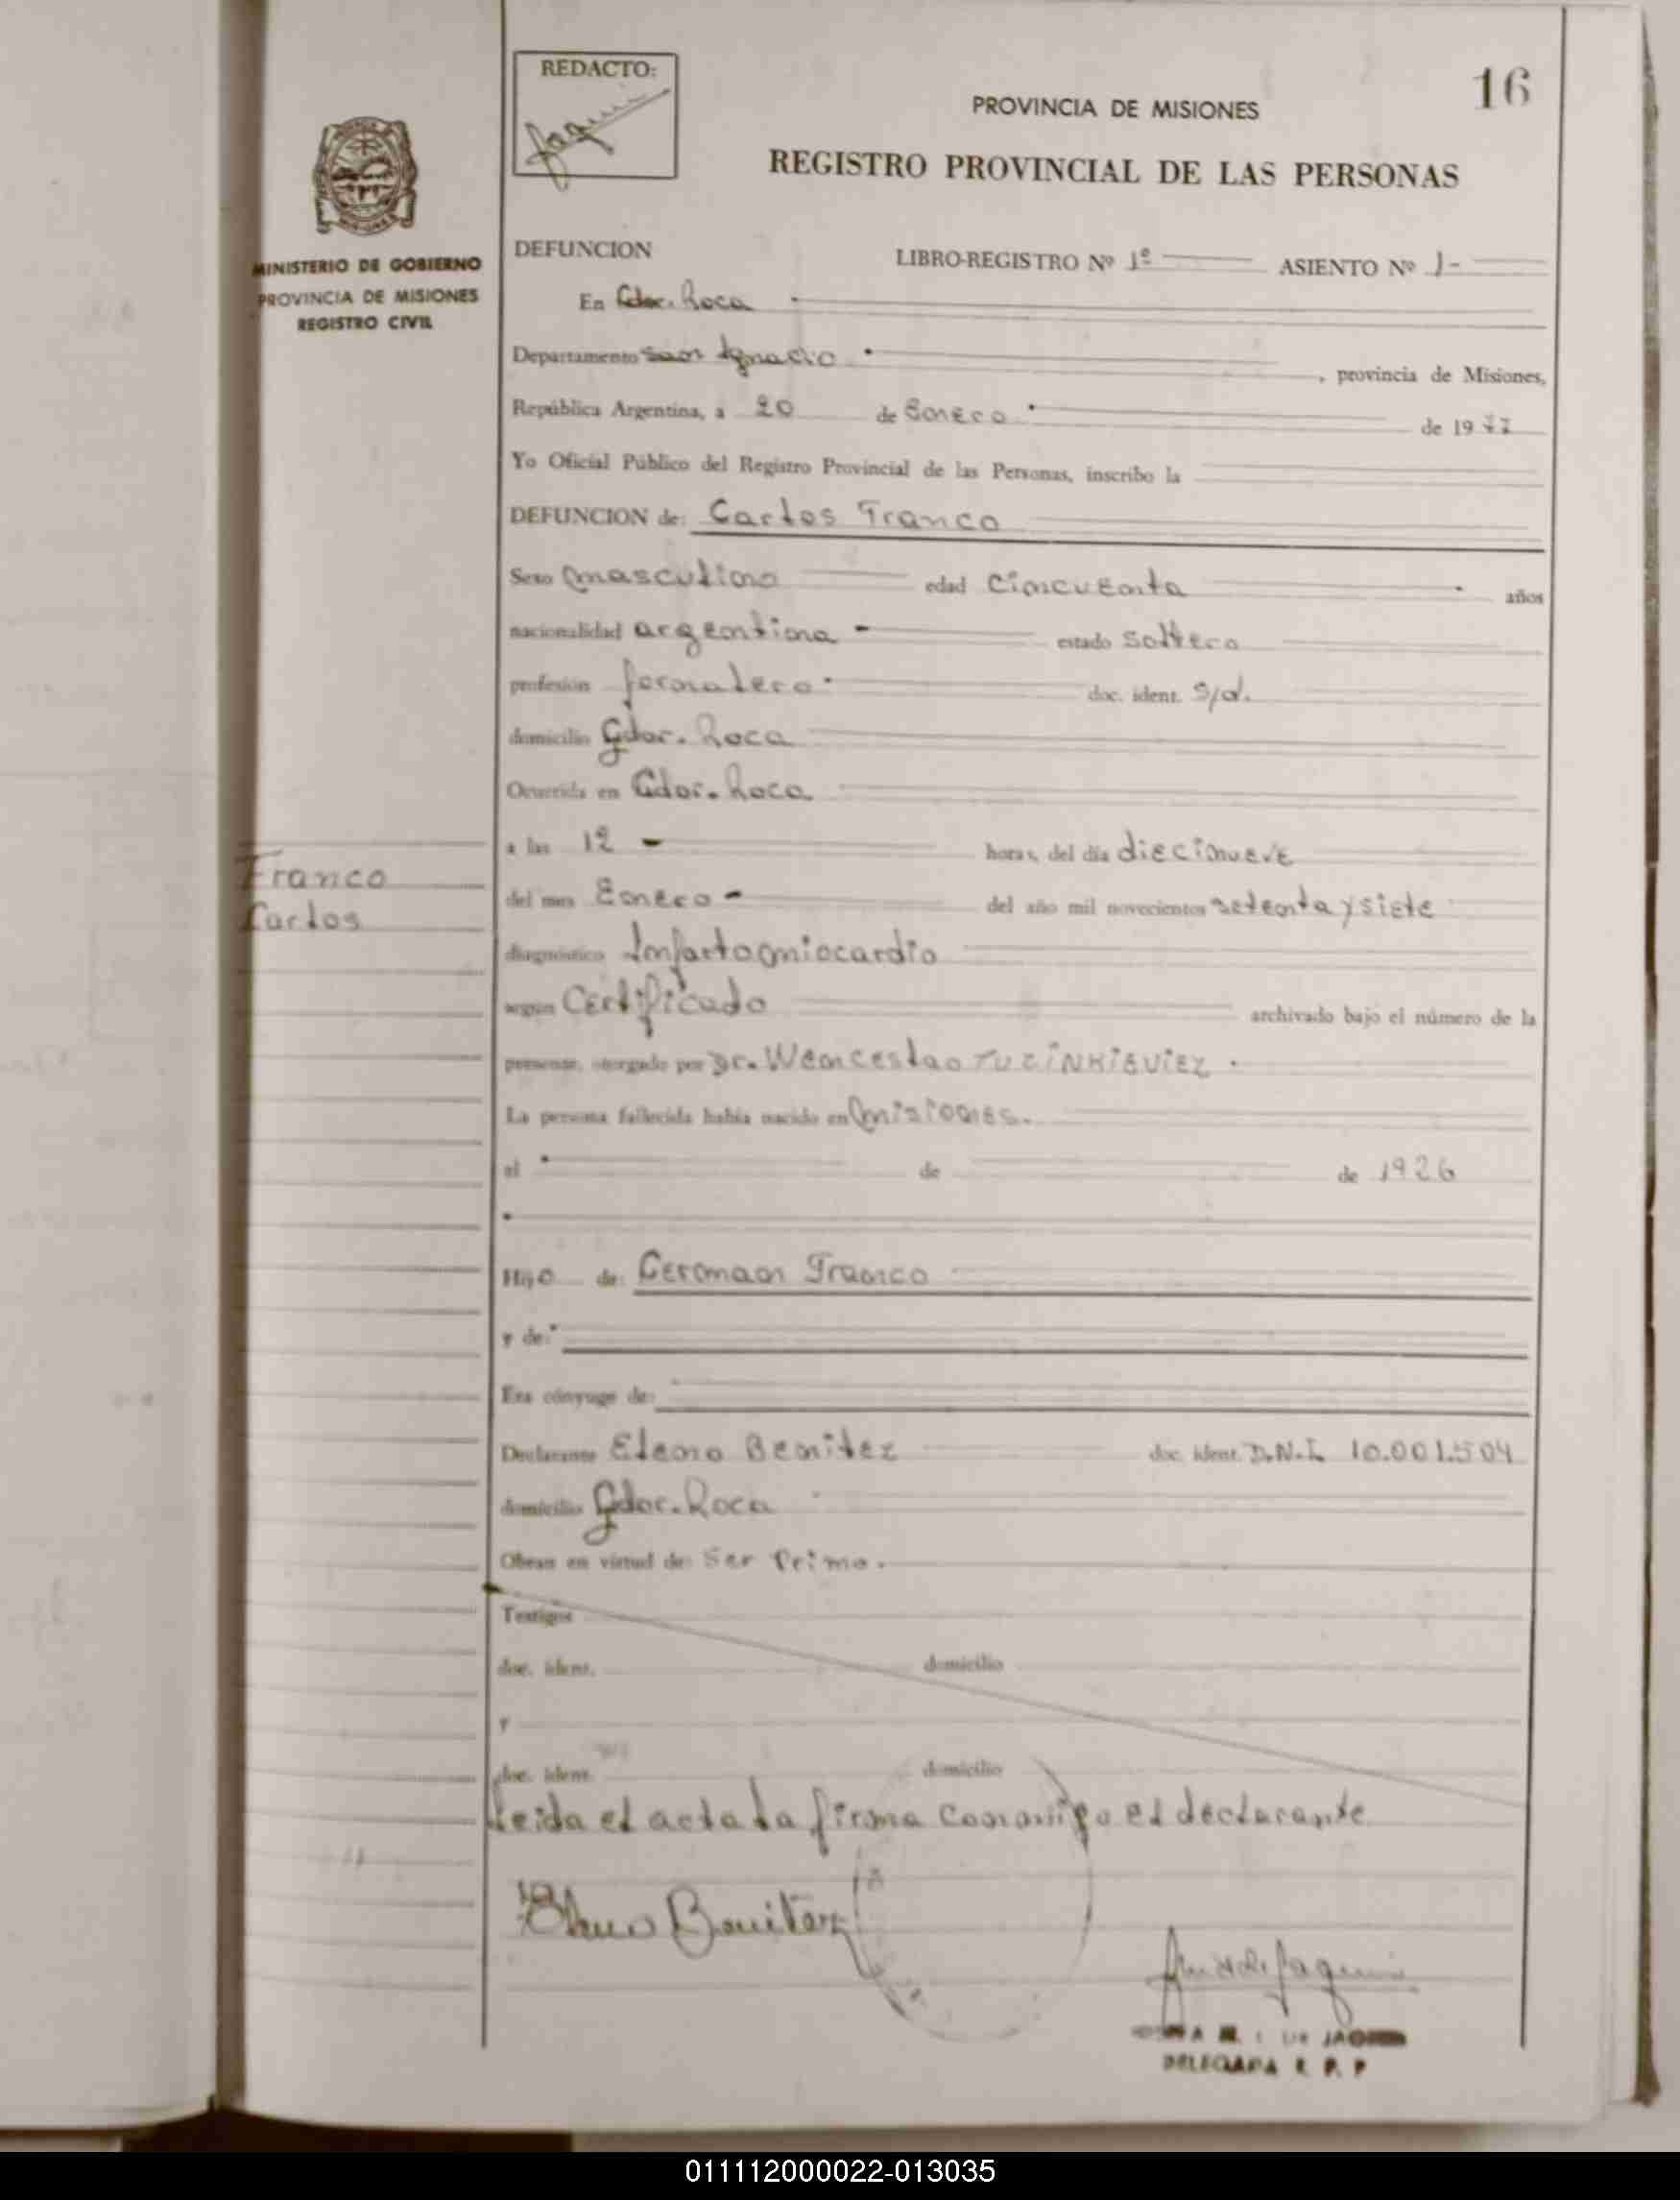 16
REDACTO:
PROVINCIA DE MISIONES
REGISTRO PROVINCIAL DE LAS PERSONAS
MINISTERIO DE GOBIERNO
PROVINCIA DE MISIONES
REGISTRO CIVIL
DEFUNCION LIBRO-REGISTRO Nº 1º ASIENTO Nº 1-
En Gdor. Roca
Departamento San Ignacio , provincia de Misiones,
República Argentina, a 20 de Enero de 1977
Yo Oficial Público del Registro Provincial de las Personas, inscribo la
DEFUNCION de: Carlos Franco
Sexo masculino edad cincuenta años
nacionalidad argentina - estado soltero
profesión jornalero. doc. ident. s/d.
domicilio Gdor. Roca
Ocurrida en Gdor. Roca
a las 12 - horas, del día diecinueve
del mes Enero - del año mil novecientos setenta y siete
Franco
Carlos
diagnóstico Infarto miocardio
según Certificado archivado bajo el número de la
presente, otorgado por Dr. Wenceslao TUZINKIEVIEZ.
La persona fallecida había nacido en misiones.
el de de 1926
Hijo de: German Franco
y de:
Era cónyuge de:
Declarante Eleno Benitez doc. ident. D.N.I. 10.001.504
domicilio Gdor. Roca
Obran en virtud de: Ser Primo.
Testigos
doc. ident. domicilio
y
doc. ident. domicilio
Leida el acta la firma conmigo el declarante
Eleno Benitez
DELEGADA R. P. P
011112000022-013035